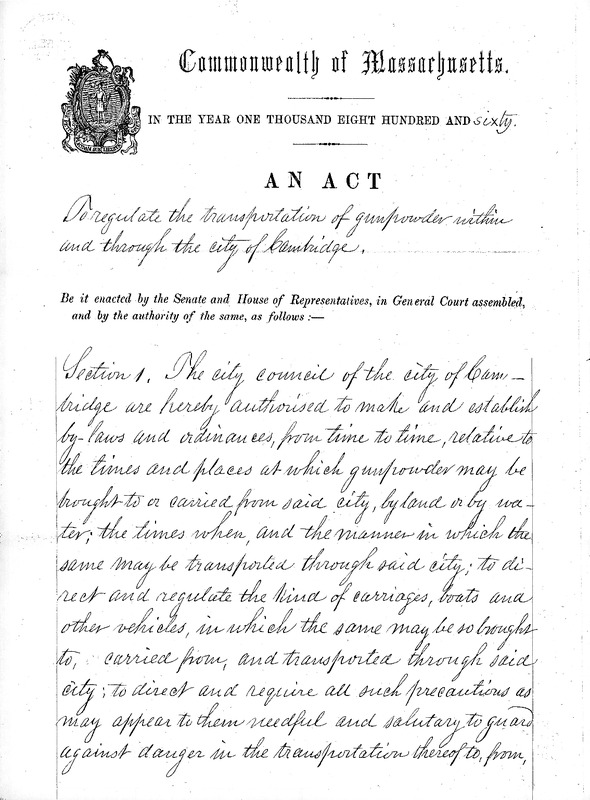 Commonwealth of Massachusetts.
IN THE YEAR ONE THOUSAND EIGHT HUNDRED AND sixty.
AN ACT
To regulate the transportation of gunpowder within
and through the city of Cambridge.
Be it enacted by the Senate and House of Representatives, in General Court assembled,
and by the authority of the same, as follows :—
Section 1. The city council of the city of Cam-
bridge are hereby authorised to make and establish
by-laws and ordinances, from time to time, relative to
the times and places at which gunpowder may be
brought to or carried from said city, by land or by wa-
ter; the times when, and the manner in which the
same may be transported through said city; to di-
rect and regulate the kind of carriages, boats and
other vehicles, in which the same may be so brought
to, carried from, and transported through said
city; to direct and require all such precautions as
may appear to them needful and salutary to guard
against danger in the transportation thereof to, from,